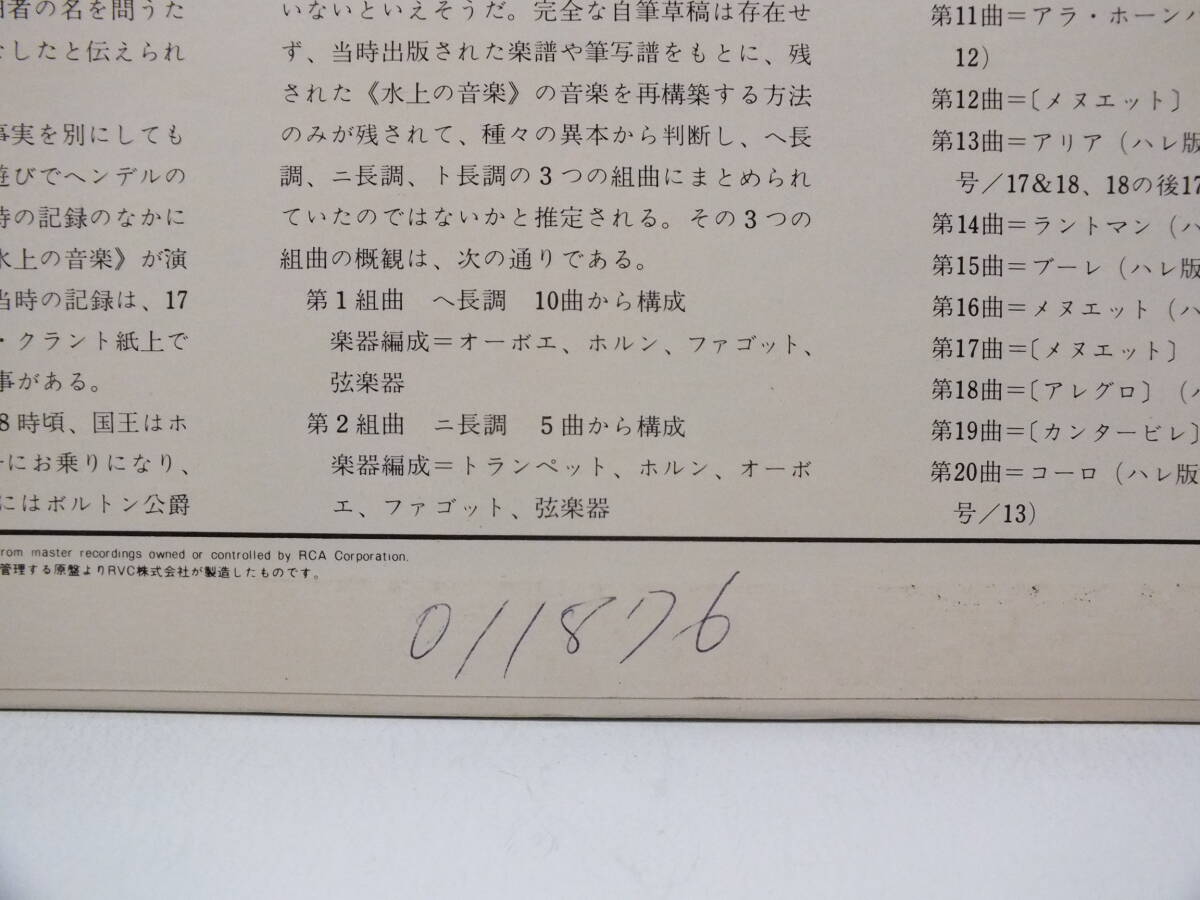 者の名を問うた
したと伝えられ
事実を別にしても
遊びでヘンデルの
時の記録のなかに
水上の音楽》が演
当時の記録は、17
・クラント紙上で
事がある。
8時頃、国王はホ
にお乗りになり、
にはボルトン公爵
いないといえそうだ。完全な自筆草稿は存在せ
ず、当時出版された楽譜や筆写譜をもとに、残
された《水上の音楽》の音楽を再構築する方法
のみが残されて、種々の異本から判断し、ヘ長
調、ニ長調、ト長調の3つの組曲にまとめられ
ていたのではないかと推定される。その3つの
組曲の概観は、次の通りである。
第1組曲 ヘ長調 10曲から構成
楽器編成=オーボエ、ホルン、ファゴット、
弦楽器
第2組曲 ニ長調 5曲から構成
楽器編成=トランペット、ホルン、オーボ
エ、ファゴット、弦楽器
第11曲=アラ・ホーンパ
12)
第12曲=〔メヌエット〕
第13曲=アリア(ハレ版
号/17&18、18の後17
第14曲=ラントマン(ハ
第15曲=ブーレ(ハレ版
第16曲=メヌエット(ハ
第17曲=〔メヌエット〕
第18曲=〔アレグロ〕(ハ
第19曲=〔カンタービレ〕
第20曲=コーロ(ハレ版
号/13)
from master recordings owned or controlled by RCA Corporation.
管理する原盤よりRVC株式会社が製造したものです。
011876